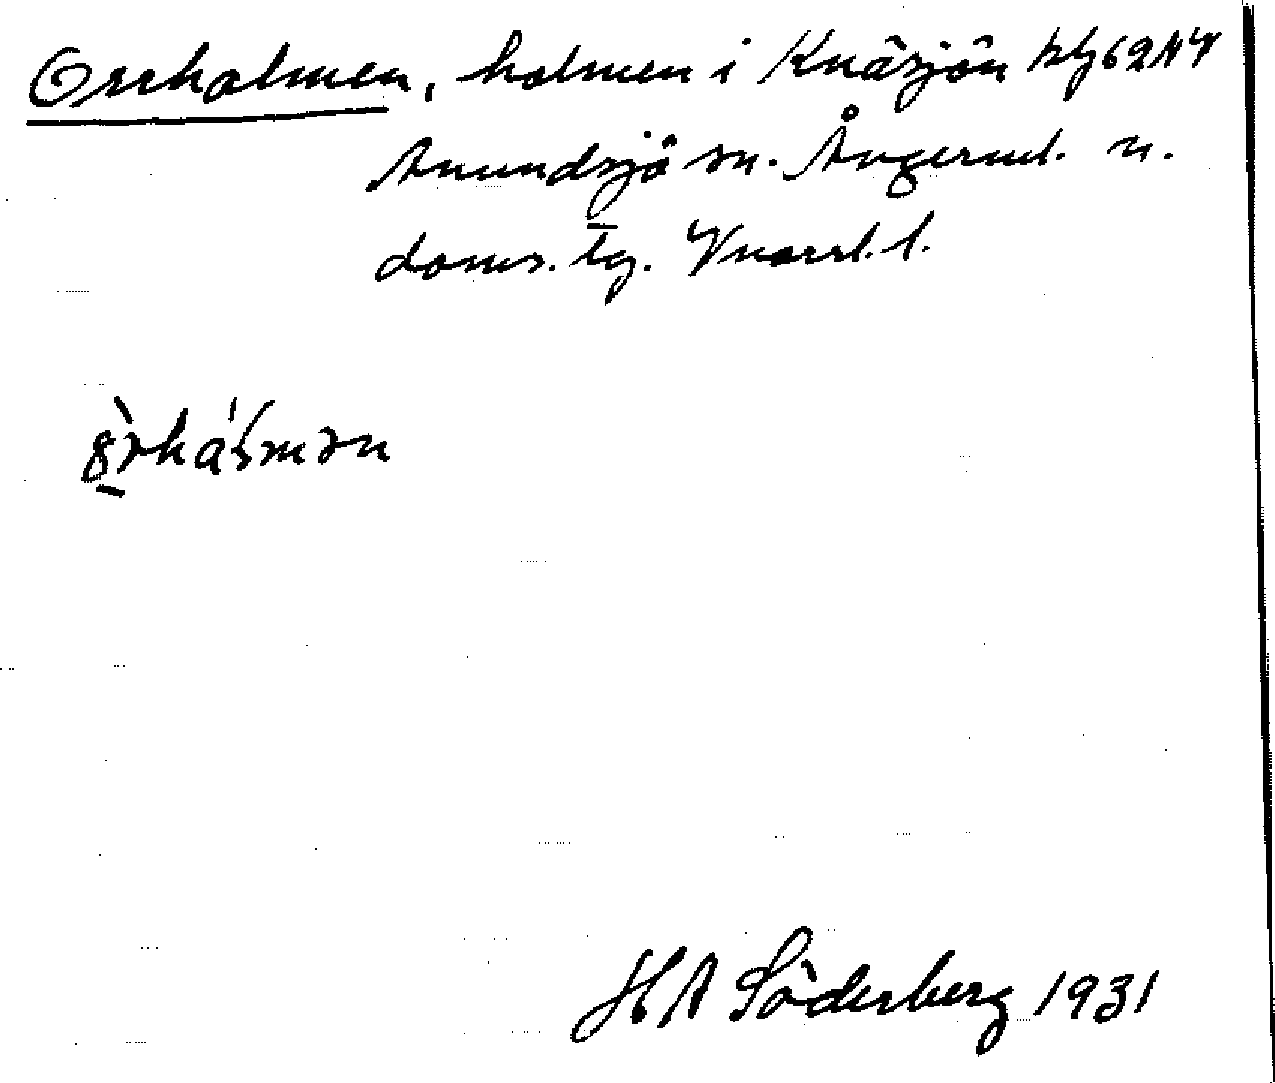 Orrholmen, holmen i Knäsjön kbl 62 NV
Anundsjö sn. Ångerml. n.
doms. tg. Vnorrl. l.
H A Söderberg 1931